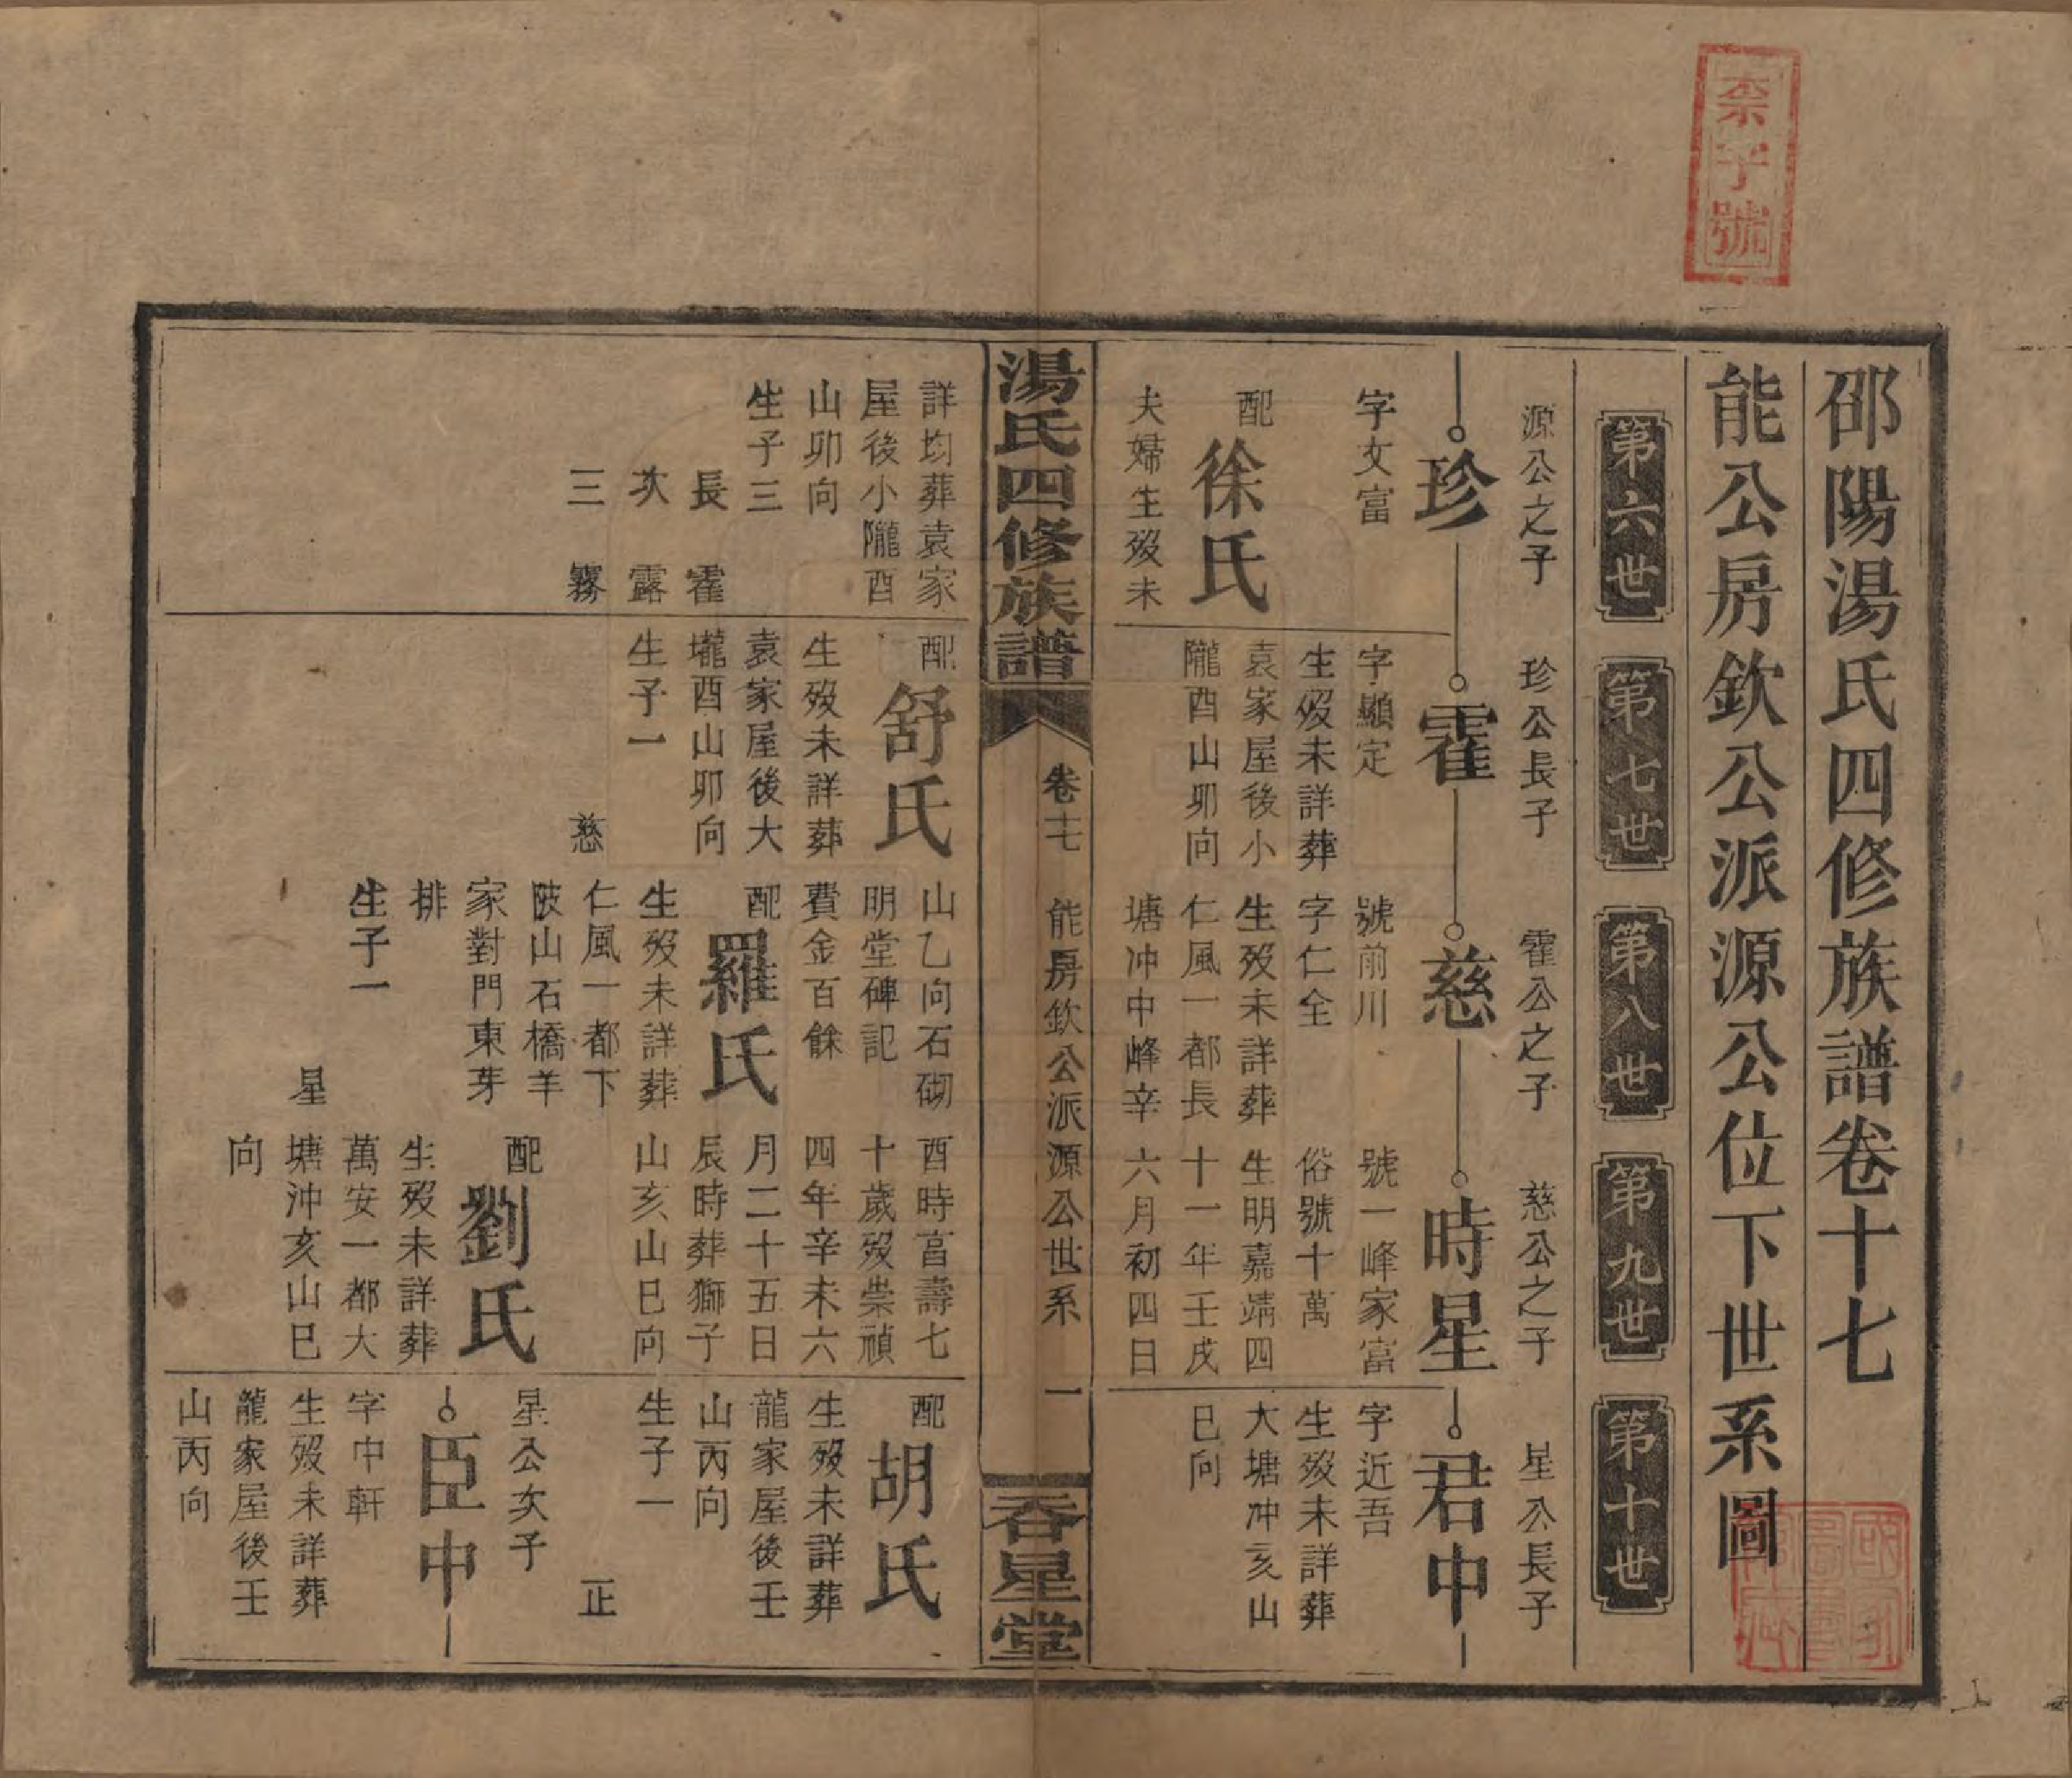 柰字號
邵陽湯氏四修族譜卷十七
能公房欽公派源公位下世系圖
第六世
第七世
第八世
第九世
第十世
源公之子
珍
字文富
配
徐氏
夫婦生歿未
詳均葬袁家
屋後小隴酉
山卯向
生子三
長 霍
次 露
三 霧
珍公長子
霍
字顯定
生歿未詳葬
袁家屋後小
隴酉山卯向
配
舒氏
生歿未詳葬
袁家屋後大
壠酉山卯向
生子一
慈
霍公之子
慈
號前川
字仁全
生歿未詳葬
仁風一都長
塘冲中峰辛
山乙向石砌
明堂碑記
費金百餘
配
羅氏
生歿未詳葬
仁風一都下
陂山石橋羊
家對門東芽
排
生子一
星
慈公之子
時星
號一峰家富
俗號十萬
生明嘉靖四
十一年壬戌
六月初四日
酉時亯壽七
十歲歿崇禎
四年辛未六
月二十五日
辰時葬獅子
山亥山巳向
配
劉氏
生歿未詳葬
萬安一都大
塘沖亥山巳
向
星公長子
君中
字近吾
生歿未詳葬
大塘冲亥山
巳向
配
胡氏
生歿未詳葬
龍家屋後壬
山丙向
生子一
正
星公次子
臣中
字中軒
生歿未詳葬
龍家屋後壬
山丙向
湯氏四修族譜
卷十七
能房欽公派源公世系
一
吞星堂